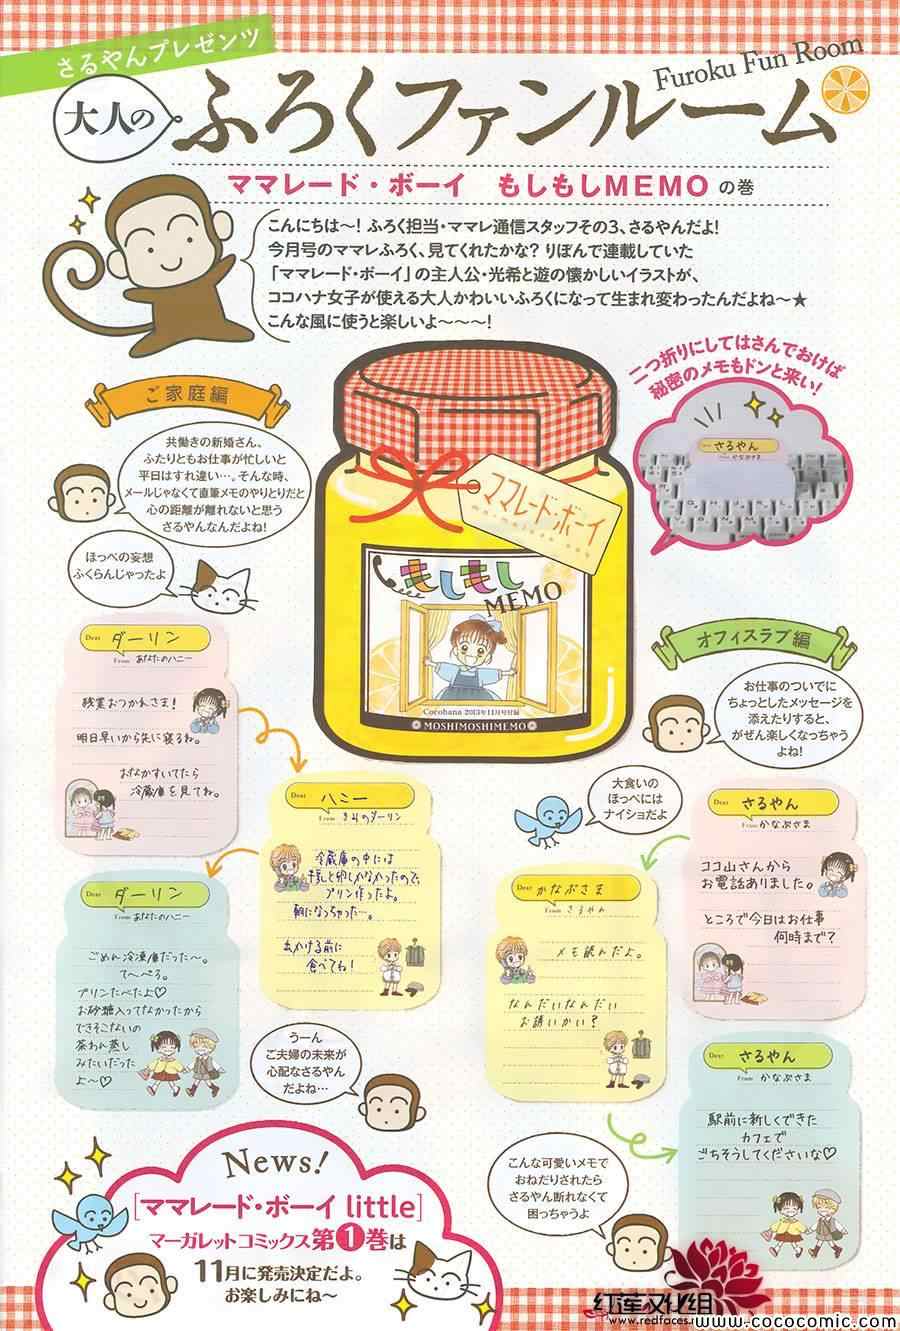 さるやんプレゼンツ
大人の
ふろくファンルーム
Furoku Fun Room
ママレード・ボーイ もしもしMEMO の巻
こんにちは〜! ふろく担当・ママレ通信スタッフその3、さるやんだよ!
今月号のママレふろく、見てくれたかな? りぼんで連載していた
「ママレード・ボーイ」の主人公・光希と遊の懐かしいイラストが、
ココハナ女子が使える大人かわいいふろくになって生まれ変わったんだよね〜★
こんな風に使うと楽しいよ〜〜〜!
二つ折りにしてはさんでおけば
秘密のメモもドンと来い!
さるやん
かなぶさま
ママレード・ボーイ
もしもし
MEMO
Cocohana 2013年11月号付録
MOSHIMOSHIMEMO
ご家庭編
共働きの新婚さん、
ふたりともお仕事が忙しいと
平日はすれ違い…。そんな時、
メールじゃなくて直筆メモのやりとりだと
心の距離が離れないと思う
さるやんなんだよね!
ほっぺの妄想
ふくらんじゃったよ
Dear ダーリン
From あなたのハニー
残業おつかれさま!
明日早いから先に寝るね。
おなかすいてたら
冷蔵庫を見てね。
Dear ハニー
From きみのダーリン
冷蔵庫の中には
牛乳と卵しかなかったので、
プリン作ったよ。
朝になっちゃった…。
出かける前に
食べてね!
Dear ダーリン
From あなたのハニー
ごめん冷凍庫だった〜。
て〜へろ。
プリンたべたよ♡
お砂糖入ってなかったから
できそこないの
茶わん蒸し
みたいだった
よ〜♡
うーん
ご夫婦の未来が
心配なさるやん
だよね…
オフィスラブ編
お仕事のついでに
ちょっとしたメッセージを
添えたりすると、
がぜん楽しくなっちゃう
よね!
大食いの
ほっぺには
ナイショだよ
Dear さるやん
From かなぶさま
ココ山さんから
お電話ありました。
ところで今日はお仕事
何時まで?
Dear かなぶさま
From さるやん
メモ読んだよ。
なんだいなんだい
お誘いかい?
Dear さるやん
From かなぶさま
駅前に新しくできた
カフェで
ごちそうしてくださいな♡
こんな可愛いメモで
おねだりされたら
さるやん断れなくて
困っちゃうよ
News!
[ママレード・ボーイ little]
マーガレットコミックス第1巻は
11月に発売決定だよ。
お楽しみにね〜
红莲汉化组
www.redfaces.ru
www.cococomic.com